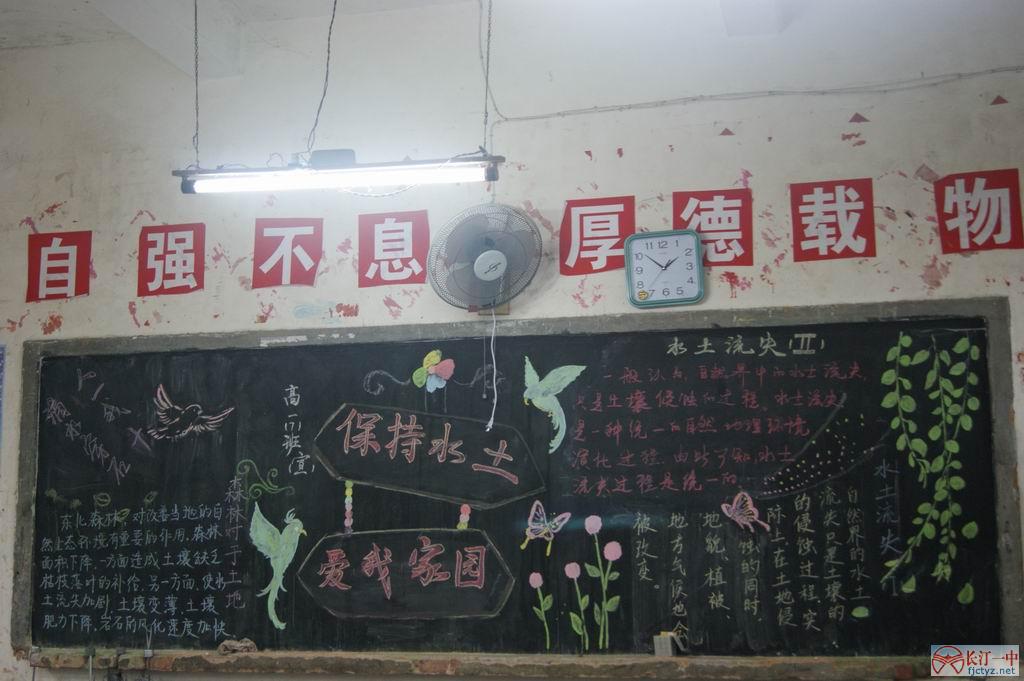 自强不息 厚德载物
12
11
1
10
2
9
3
8
4
7
5
6
水土流失(II)
一般认为，自然界中的水土流失
只是土壤侵蚀的过程。水土流失
是一种统一的自然地理环境
演化过程，由此可知，水土
流失过程是统一的
高一(7)班(宣)
保持水土
爱我家园
森林对于土地
东北森林，对改善当地的自
然生态环境有重要的作用。森林
面积下降，一方面造成土壤缺乏
枯枝落叶的补给，另一方面，使水
土流失加剧，土壤变薄，土壤
肥力下降，岩石风化速度加快
水土流失
自然界的水土
流失只是土壤的
的侵蚀过程，实
际上在土地侵
蚀的同时，
地貌、植被、
地方气候也会
被改变。
长汀一中
fjctyz.net